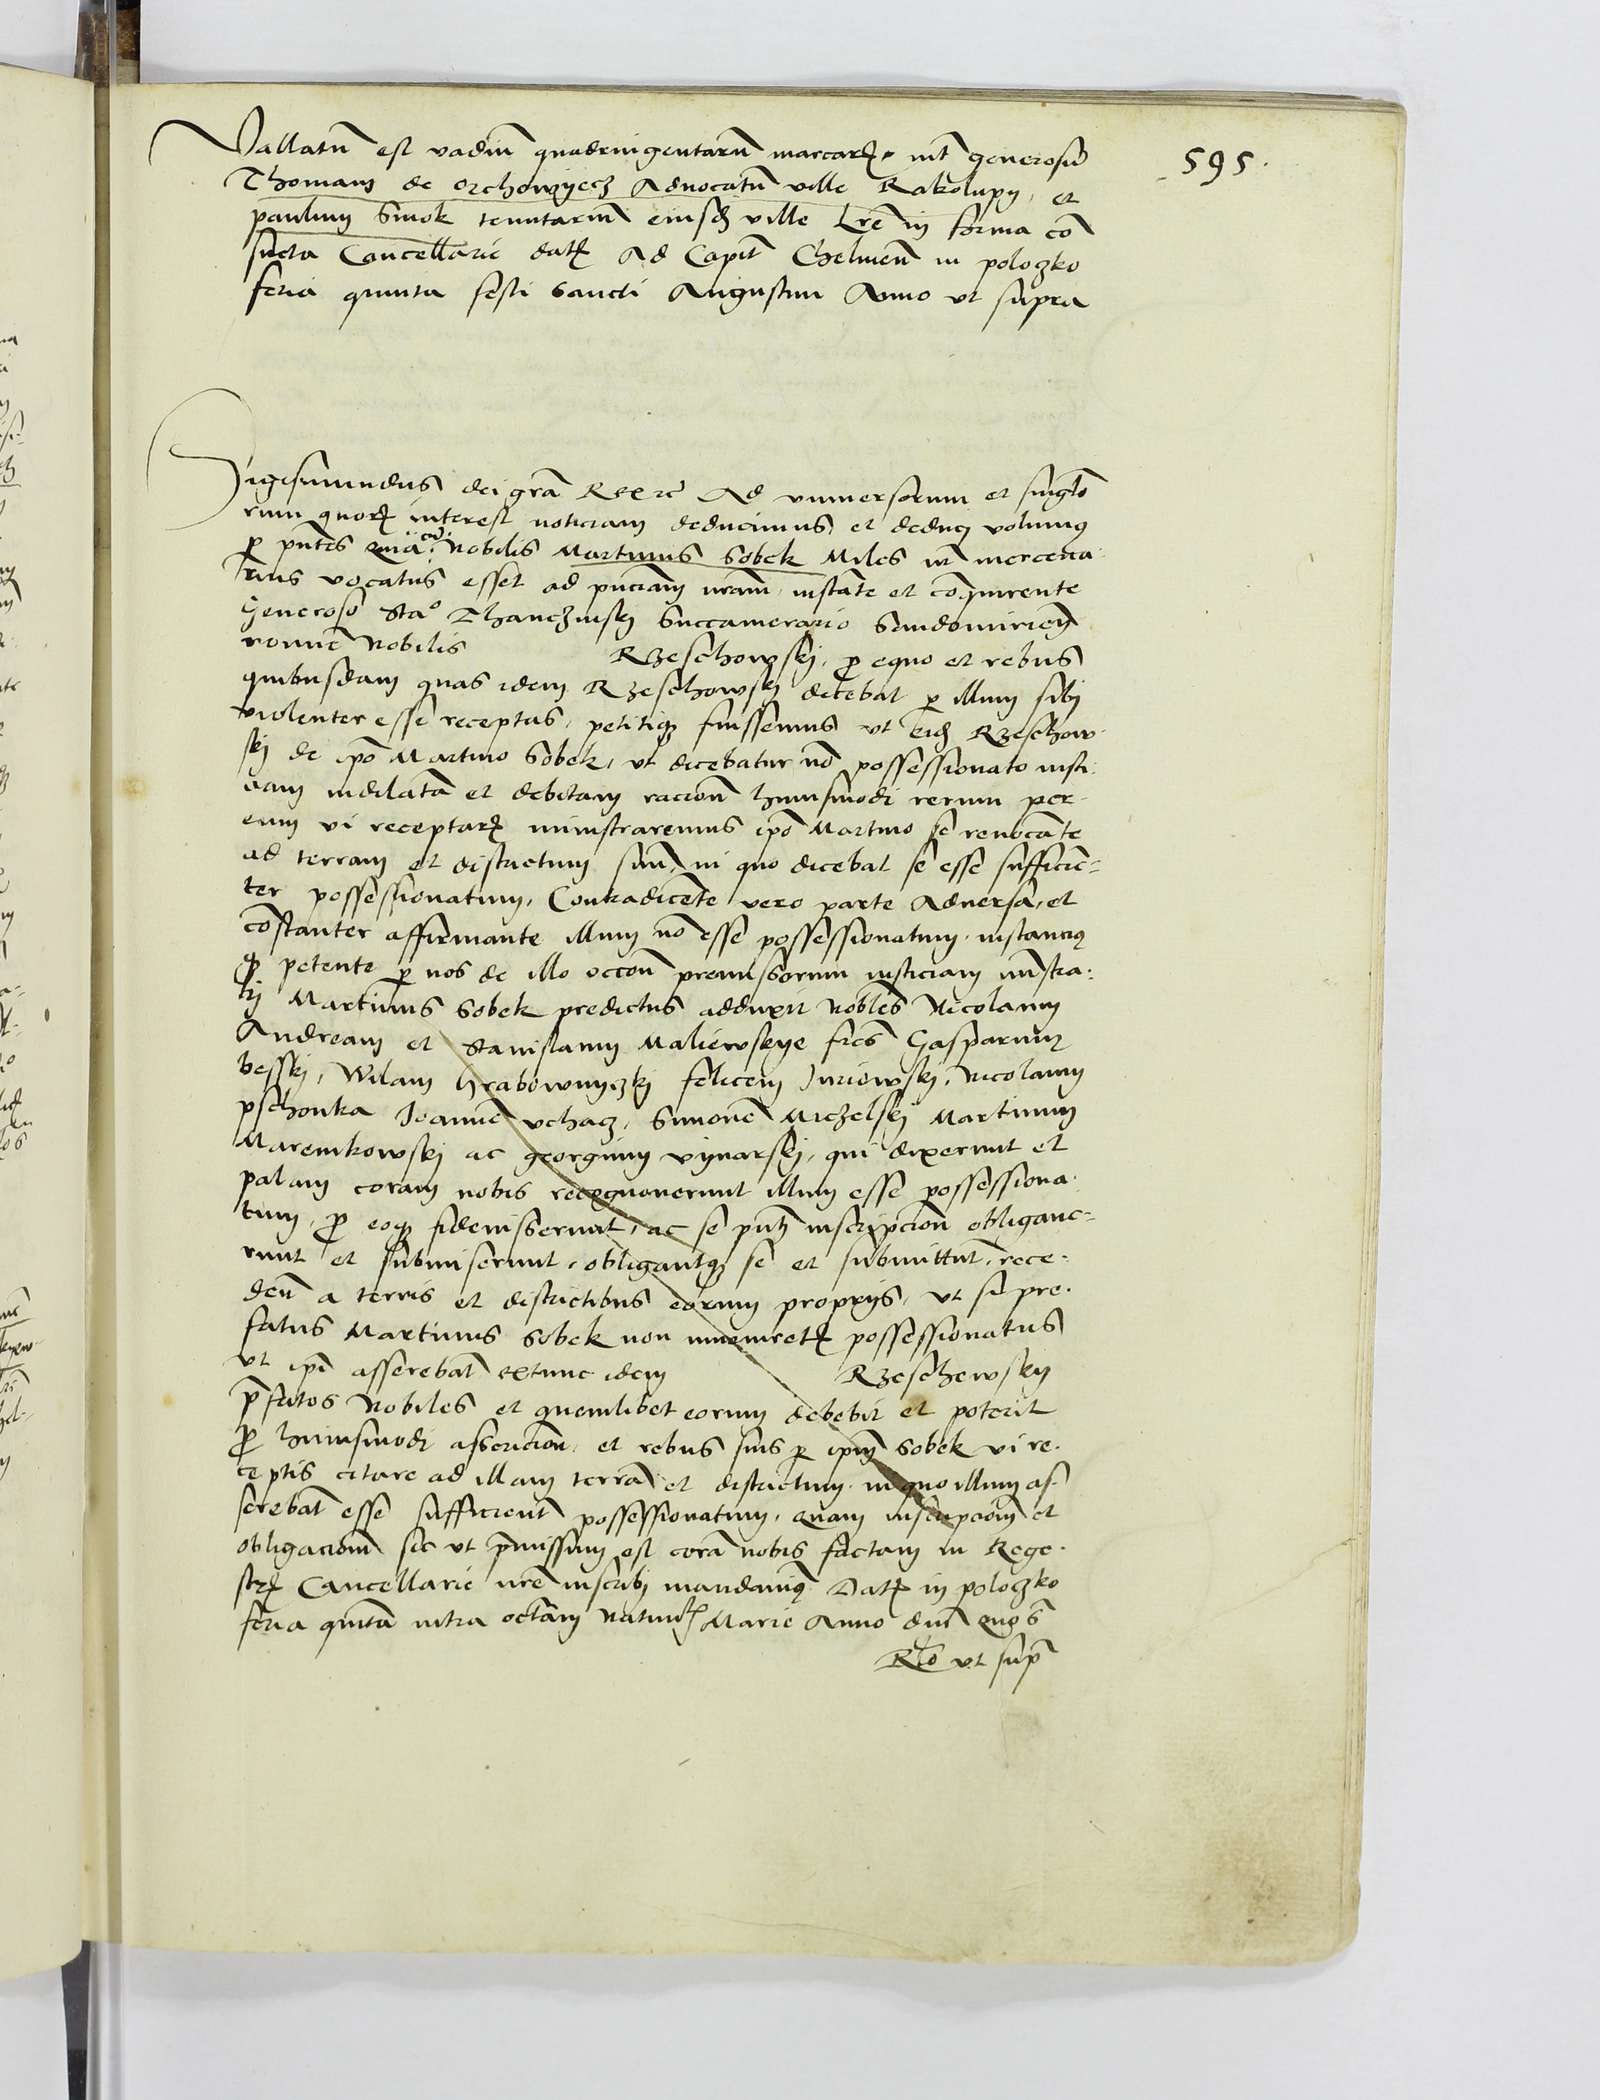 595.
Vallatū est vadiū quadringentarū marcarꝝ int̄ generosū
Thomam de Orchowyecz Advocatū ville Rakolupy, et
paulum Smok tenutariū eiusdꝫ ville Lrē in forma cō
sueta Cancellarie datꝫ Ad Capit̄ Chelmeñ in poloczko
feria quinta festi Sancti Augustini Anno ut supra
Sigismundus dei grā Rex rc̄ Ad universorum et singlo
rum quorꝝ interest noticiam deducimus, et deduci volumus
ꝑ pntēs Quia cū nobilis Martinus Sobek Miles nr̄ mercena
rius vocatus esset ad pn̄ciam nram, instāte et cōquirente
Generoso Sta° Thanczinsky Succamerario Sandomirieñ
noīne Nobilis Rzeschowsky, ꝓ equo et rebus
quibusdam quas idem Rzeschowsky dicebat ꝑ illum sibi
violenter esse receptas, petitiqꝫ fuissemus ut eidꝫ Rzeschow
ski de ipō Martino Sobek, ut dicebatur nō possessionato iusti
ciam indilatā et debitam racione huiusmodi rerum per
eum vi receptarꝝ ministraremus ipō Martino se revocāte
ad terram et districtum suū, in quo dicebat se esse sufficiē-
ter possessionatum, Contradicente vero parte Adversa, et
cōstanter affirmante illum nō esse possessionatum, instancius
qꝫ petente ꝑ nos de illo occoñ premissorum iusticiam mīstra-
ri Martinus Sobek predictus adduxit Nobiles Nicolaum
Andream et Stanislaum Maliewskye frēs Gasparum
besski, Wilam Grabownyczki felicem Iuriowski, Nicolaum
pschonka Ioannē uchacz, Simonē Miczelski Martinum
Marenkowski ac georgium vynarski, qui dixerunt et
palam coram nobis recognoverunt illum esse possessiona
tum, ꝓ eoqꝫ fideiusserunt, ac se pntꝫ inscripcioñ obligave-
runt et submiserunt, obligantqꝫ se et submittūt, rece-
deñ a terris et districtibus eorum propriis, ut si pre-
fatus Martinus Sobek non inveniretꝫ possessionatus
ut ipī asserebāt extunc idem Rzeschewsky
p̄fatos Nobiles et quemlibet eorum debebit et poterit
ꝓ huiusmodi assercioñ, et rebus suis ꝑ ipm̄ Sobek vi re-
ceptis citare ad illam terrā et districtum in quo illum as-
serebāt esse sufficient̄ possessionatum, Quam inscripcōm et
obligacionē sic ut p̄missum est corā nobis factam in Rege-
strꝫ Cancellarie nrē inscribi mandavimꝰ Datꝫ in poloczko
feria quīta intra octām Nativitꝫ Marie Anno dnī quo s̄
Rlō ut sup̄